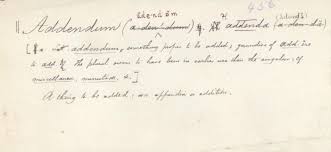 456
ădeˑndŏm
‖ Addendum (a-den·dum) Pl. addenda (a-den-dă)
[L. addendum, something proper to be added, gerundive of addĕre
to add. The plural seems to have been in earlier use than the singular; cf.
miscellanea, minutiæ, &.]
A thing to be added; an appendix or addition.